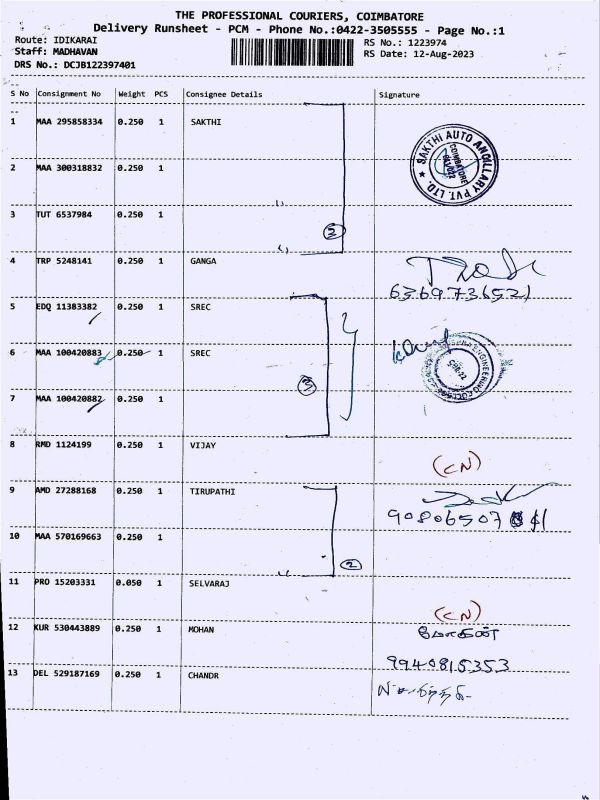 THE PROFESSIONAL COURIERS, COIMBATORE
Delivery Runsheet - PCM - Phone No.:0422-3505555 - Page No.:1
Route: IDIKARAI
RS No.: 1223974
Staff: MADHAVAN
RS Date: 12-Aug-2023
DRS No.: DCJB122397401
S No Consignment No Weight PCS Consignee Details Signature
1 MAA 295858334 0.250 1 SAKTHI
SAKTHI AUTO ANCILLARY PVT. LTD.
COIMBATORE
2 MAA 300318832 0.250 1
3 TUT 6537984 0.250 1
3
4 TRP 5248141 0.250 1 GANGA
6369736521
5 EDQ 11383382 0.250 1 SREC
6 MAA 100420883 0.250 1 SREC
ENGINEERING COLLEGE
7 MAA 100420882 0.250 1
3
8 RMD 1124199 0.250 1 VIJAY
(CN)
9 AMD 27288168 0.250 1 TIRUPATHI
10 MAA 570169663 0.250 1
2
11 PRO 15203331 0.050 1 SELVARAJ
(CN)
12 KUR 530443889 0.250 1 MOHAN
மோகன்
9940815353
13 DEL 529187169 0.250 1 CHANDR